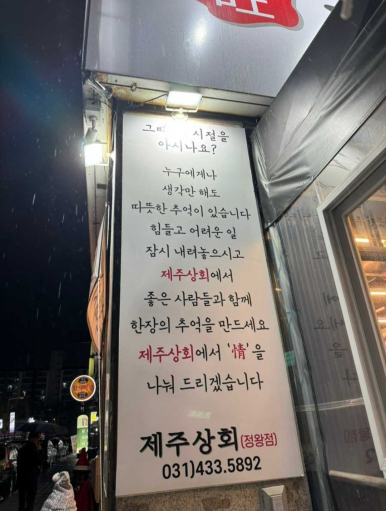 시절을
아시나요?
누구에게나
생각만 해도
따뜻한 추억이 있습니다
힘들고 어려운 일
잠시 내려놓으시고
제주상회에서
좋은 사람들과 함께
한장의 추억을 만드세요
제주상회에서 '情'을
나눠 드리겠습니다
제주상회(정왕점)
031)433.5892